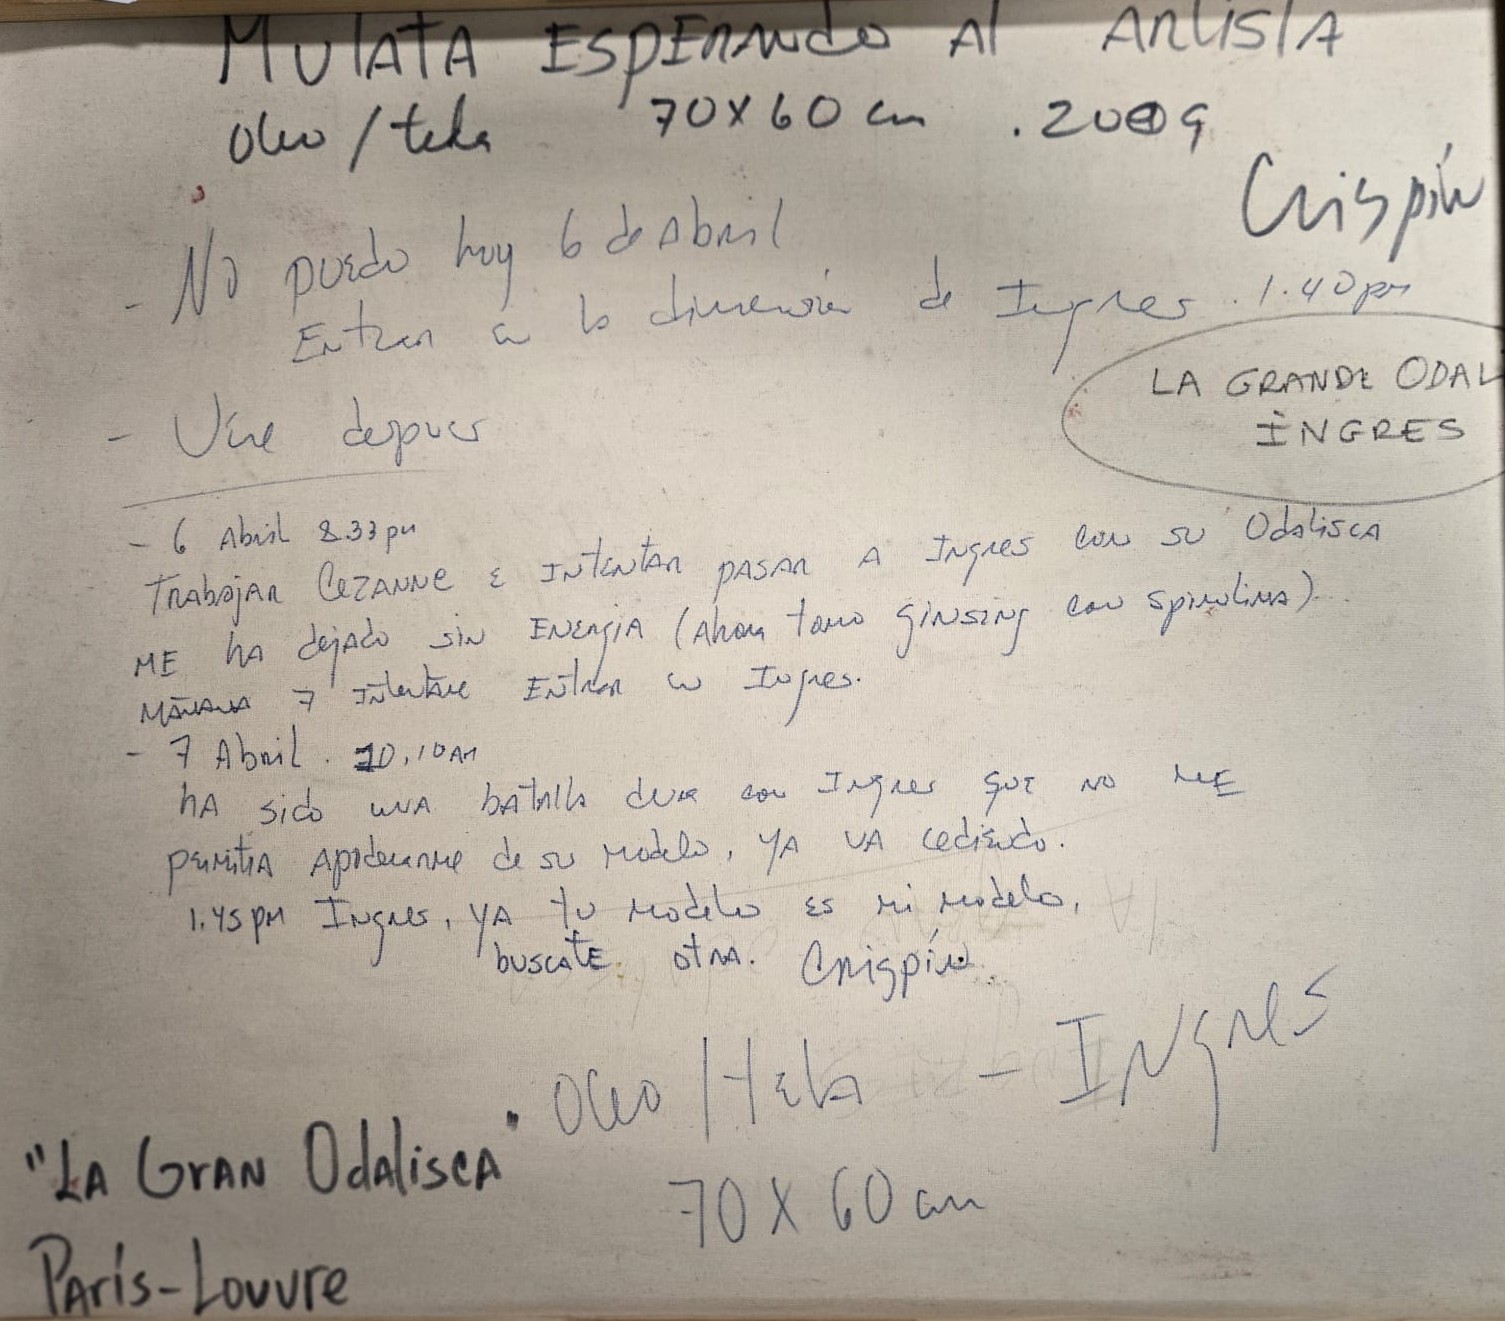 MULATA ESPERANDO AL ARTISTA
oleo/tela 70x60 cm .2009
Crispín
- No puedo hoy 6 de Abril
Entrar en la dimensión de Ingres. 1.40pm
LA GRANDE ODAL
INGRES
- Vine despues
- 6 Abril 8.33pm
TRABAJAR CEZANNE E INTENTAR PASAR A INGRES con su Odalisca
ME HA dejado sin ENERGIA (Ahora tomo GINSENG con Spirulina)
MAÑANA 7 Intentare Entrar en Ingres.
- 7 Abril. 10.10AM
HA sido una batalla dura con Ingres que no ME
permitia Apoderarme de su modelo, YA VA cediendo.
1.45pm Ingres, YA tu modelo es mi modelo,
buscate otra. Crispín
Oleo/tela - INgres
"LA GrAN OdaliscA"
70 X 60 cm
París-Louvre